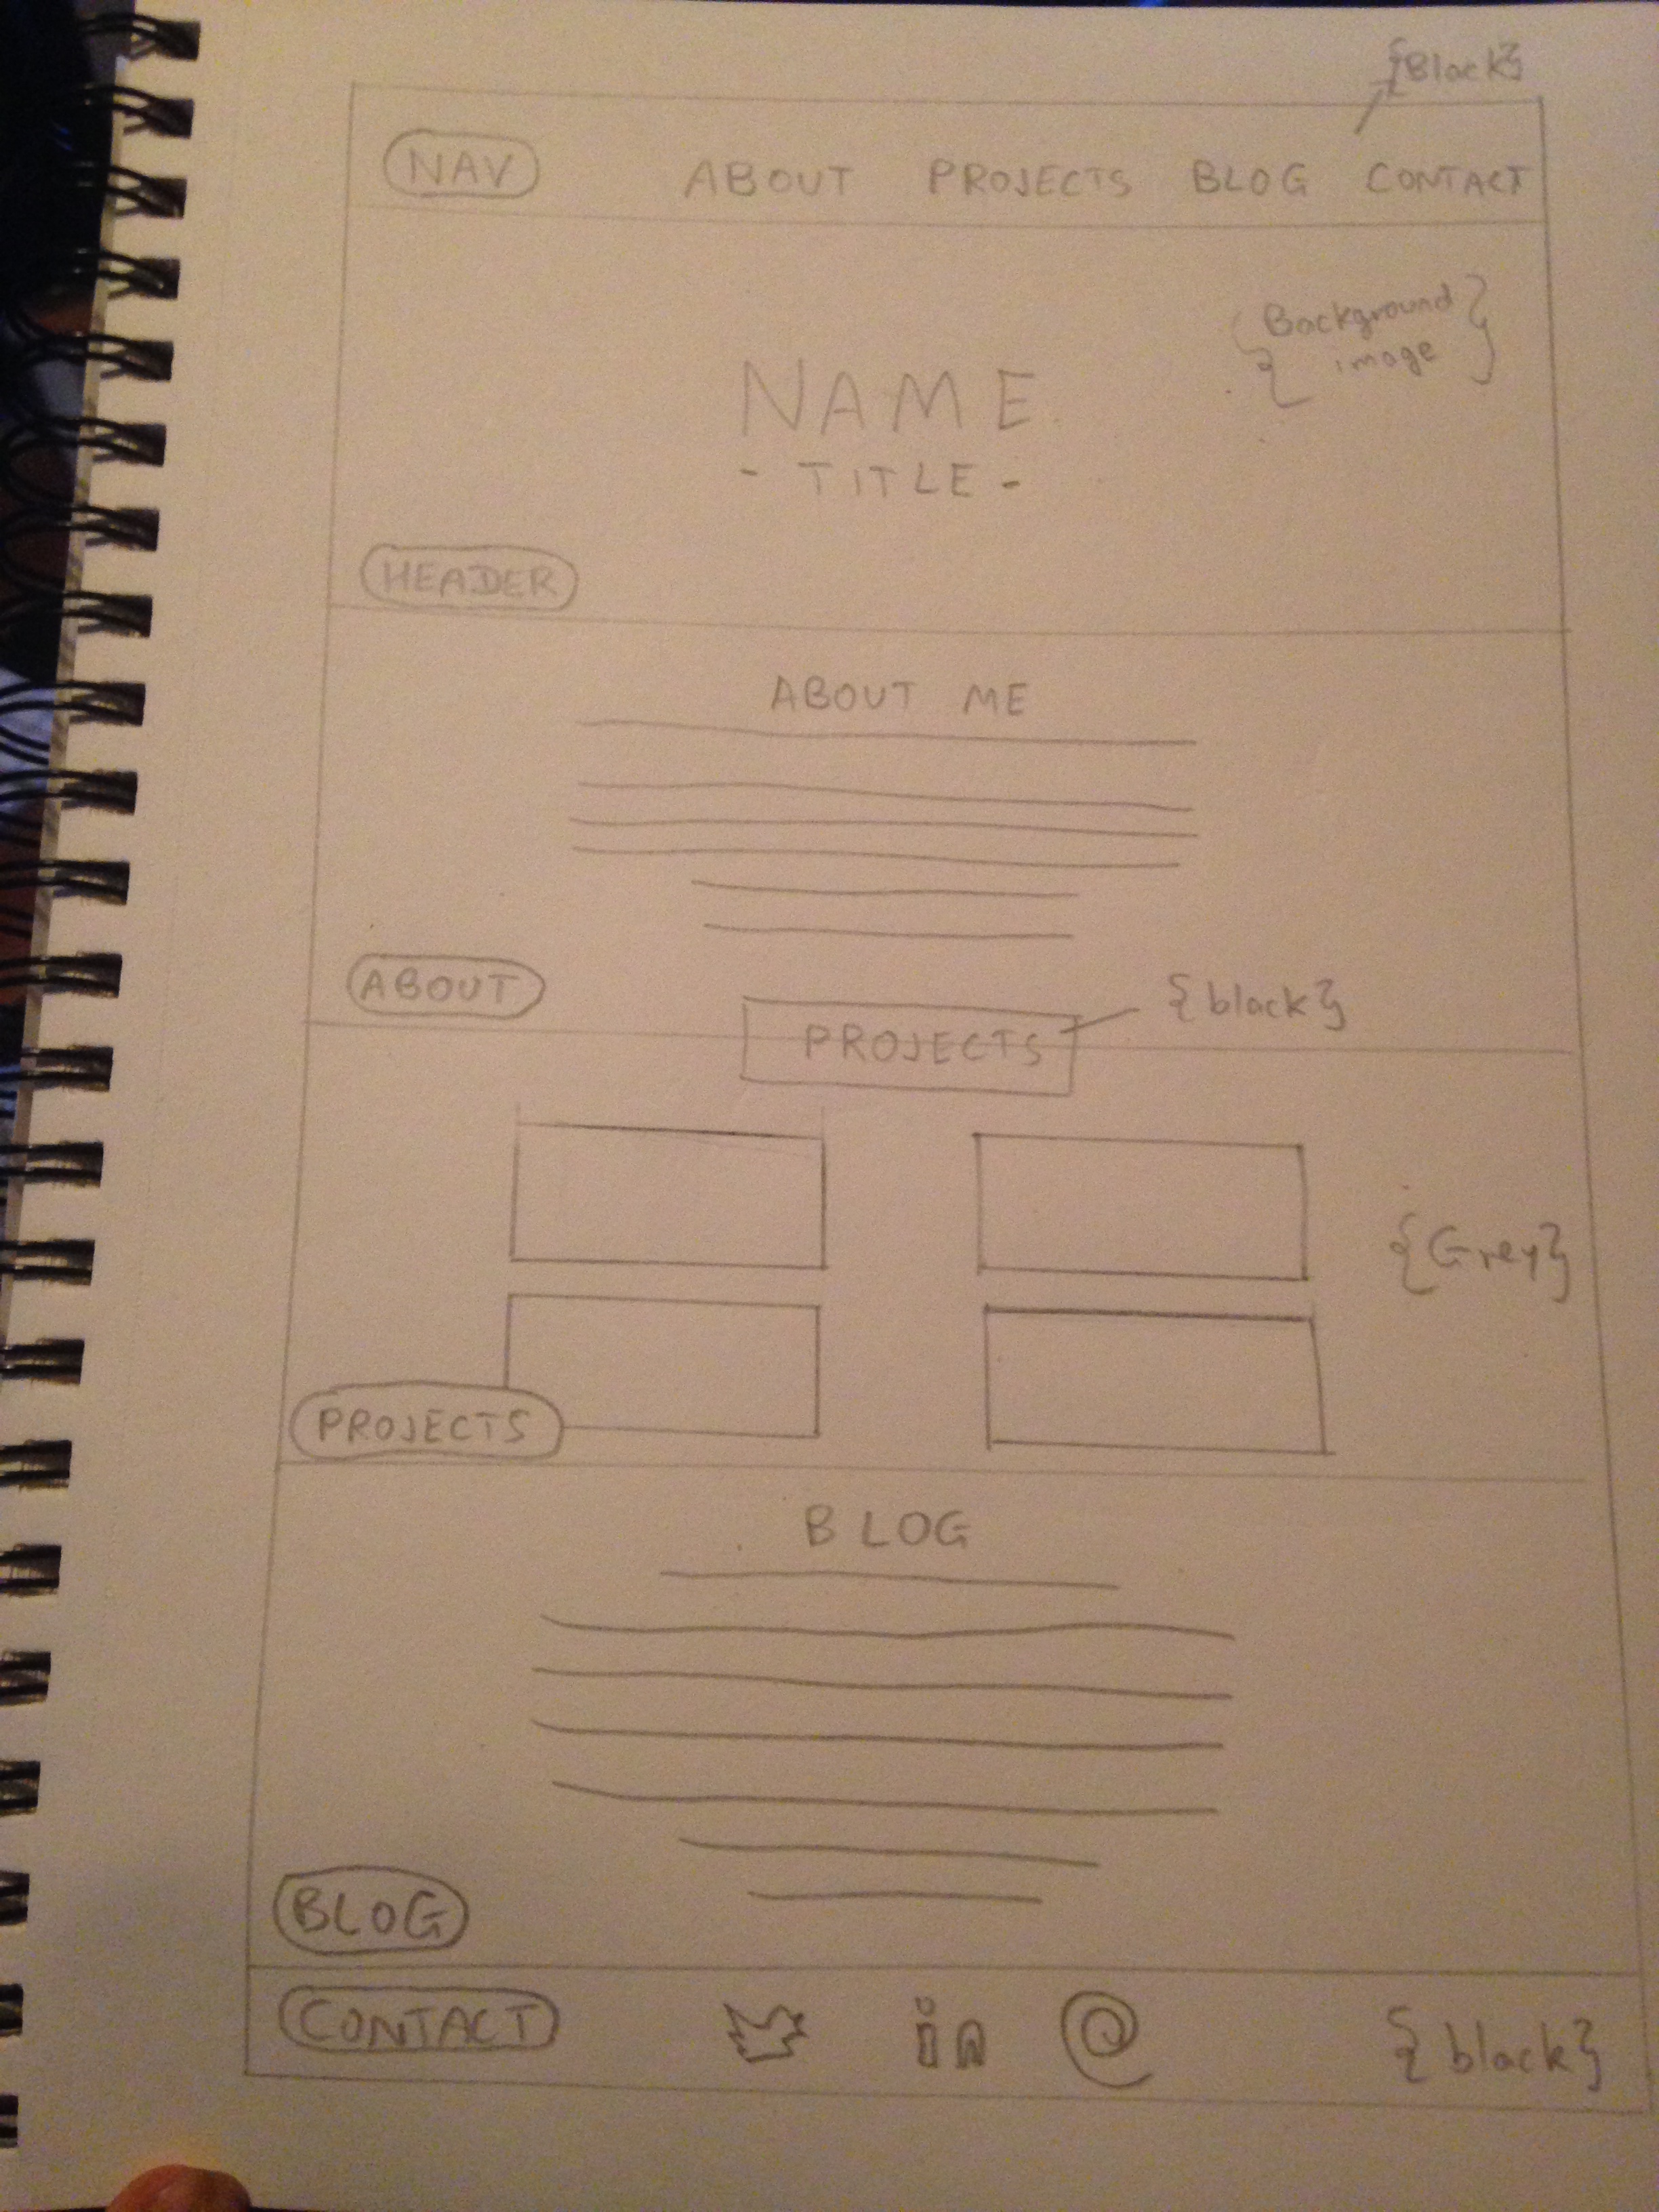 {Black}
NAV ABOUT PROJECTS BLOG CONTACT
{Background
image}
NAME
- TITLE -
HEADER
ABOUT ME
ABOUT
{black}
PROJECTS
{Grey}
PROJECTS
BLOG
BLOG
CONTACT in @ {black}